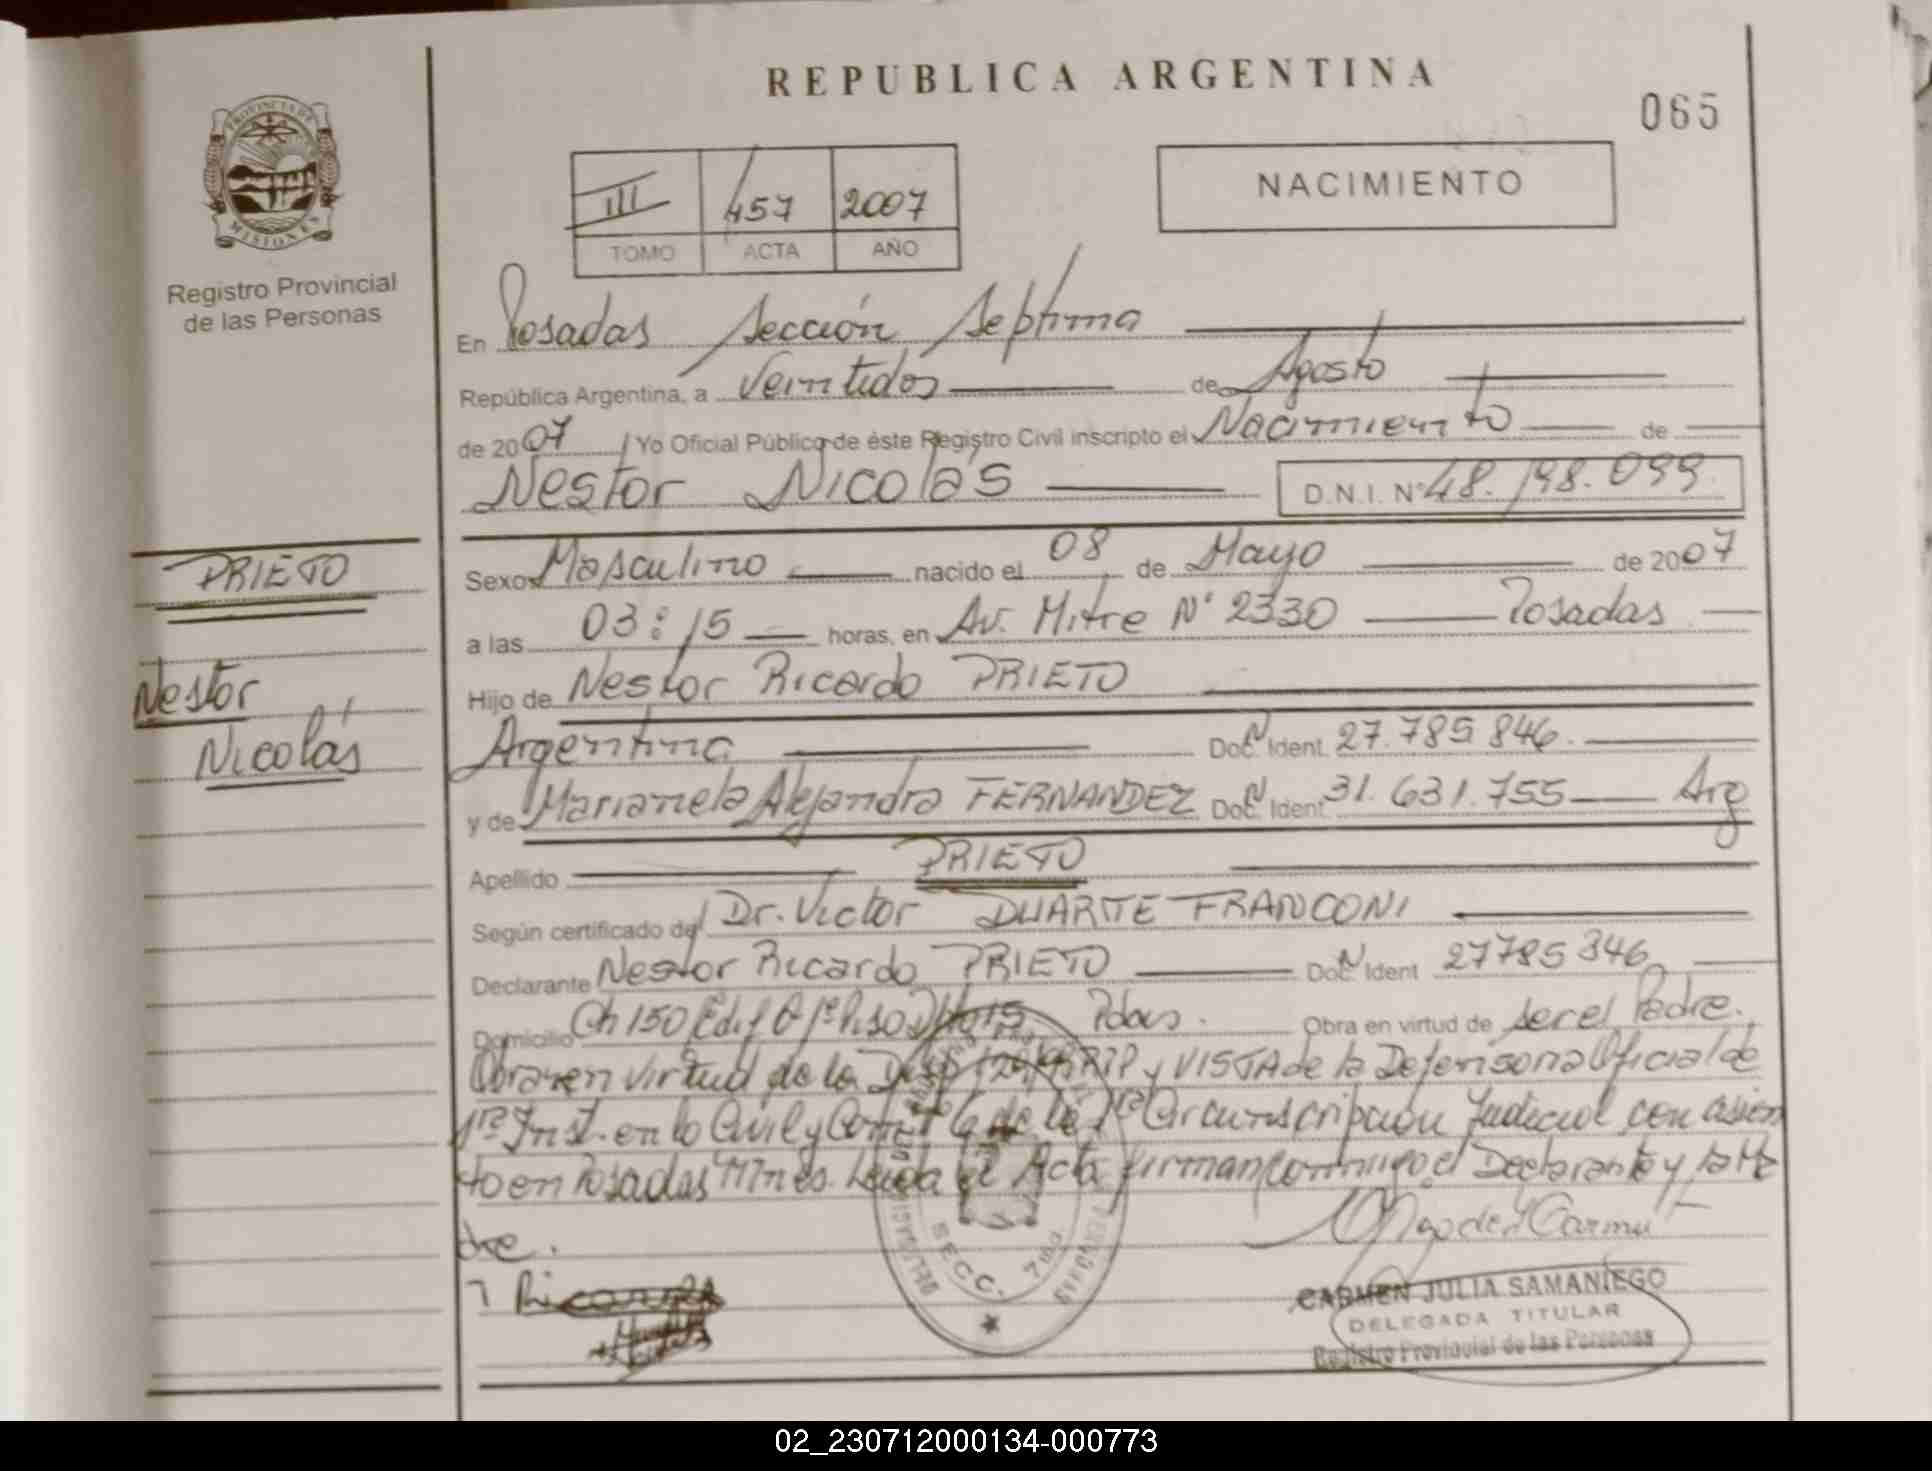 REPUBLICA ARGENTINA
065
PROVINCIA DE
MISIONES
Registro Provincial
de las Personas
III 457 2007
TOMO ACTA AÑO
NACIMIENTO
En Posadas Sección Septima
República Argentina, a Veintidos de Agosto
de 2007 Yo Oficial Público de éste Registro Civil inscripto el Nacimiento de
Nestor Nicolás D.N.I. Nº 48.198.099
PRIETO
Nestor
Nicolás
Sexo Masculino nacido el 08 de Mayo de 2007
a las 03:15 horas, en Av. Mitre Nº 2330 Posadas
Hijo de Nestor Ricardo PRIETO
Argentina Doc. Ident. 27.785 846.
y de Marianela Alejandra FERNANDEZ Doc. Ident. 31.631.755 Arg
Apellido PRIETO
Según certificado del Dr. Victor DUARTE FRANCONI
Declarante Nestor Ricardo PRIETO Doc. Ident 27785346
Domicilio Ch 150 Edif 1º Piso Dpto 15 Pdas. Obra en virtud de ser el Padre.
Obra en virtud de la RPP y VISTA de la Defensoria Oficial de
1ra Inst. en lo Civil y de la 1ra Circunscripción Judicial con asien
to en Posadas Mnes. Leida el Acta firman conmigo el Declarante y la Ma
dre.
SECC. 7ma
CARMEN JULIA SAMANIEGO
DELEGADA TITULAR
Registro Provincial de las Personas
02_230712000134-000773